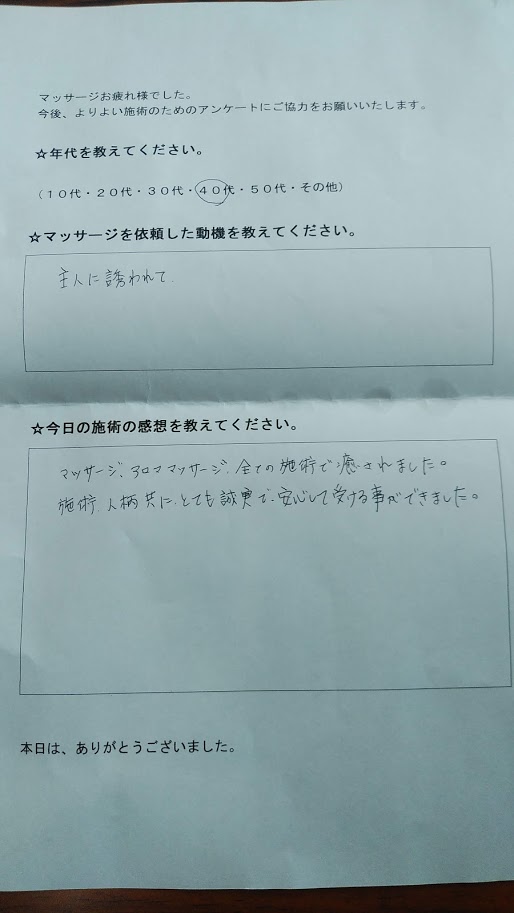 マッサージお疲れ様でした。
今後、よりよい施術のためのアンケートにご協力をお願いいたします。
☆年代を教えてください。
（１０代・２０代・３０代・４０代・５０代・その他）
☆マッサージを依頼した動機を教えてください。
主人に誘われて.
☆今日の施術の感想を教えてください。
マッサージ、アロママッサージ、全ての施術で癒されました。
施術、人柄共に、とても誠実で、安心して受ける事ができました。
本日は、ありがとうございました。